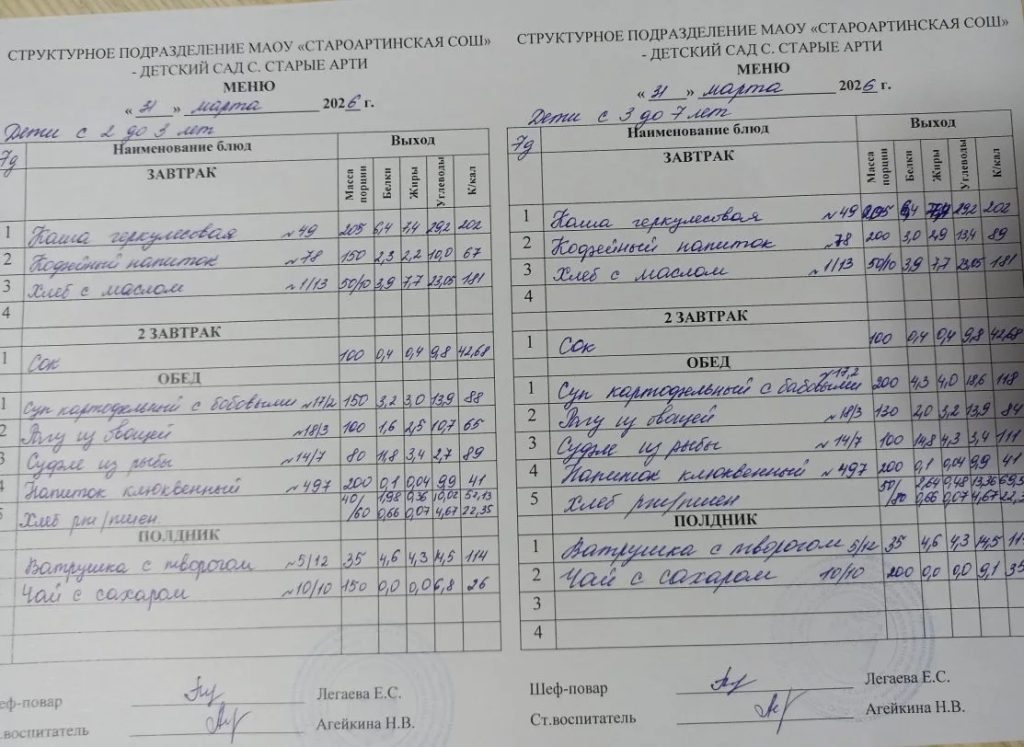 СТРУКТУРНОЕ ПОДРАЗДЕЛЕНИЕ МАОУ «СТАРОАРТИНСКАЯ СОШ»
- ДЕТСКИЙ САД С. СТАРЫЕ АРТИ
МЕНЮ
« 31 » марта 2026 г.
Дети с 2 до 3 лет
7д Наименование блюд Выход
ЗАВТРАК Масса порции Белки Жиры Углеводы К/кал
1 Каша геркулесовая №49 205 6,4 7,4 29,2 202
2 Кофейный напиток №78 150 2,3 2,2 10,0 67
3 Хлеб с маслом №1/13 50/10 3,9 7,7 23,05 181
4
2 ЗАВТРАК
1 Сок 100 0,4 0,4 9,8 42,68
ОБЕД
1 Суп картофельный с бобовыми №17/2 150 3,2 3,0 13,9 88
2 Рагу из овощей №18/3 100 1,6 2,5 10,7 65
3 Суфле из рыбы №14/7 80 11,8 3,4 2,7 89
4 Напиток клюквенный №497 200 0,1 0,04 9,9 41
5 Хлеб рж/пшен 40/60 1,98 0,36 10,02 52,13
0,66 0,07 4,67 22,35
ПОЛДНИК
Ватрушка с творогом №5/12 35 4,6 4,3 14,5 114
Чай с сахаром №10/10 150 0,0 0,0 6,8 26
еф-повар Легаева Е.С.
т.воспитатель Агейкина Н.В.
СТРУКТУРНОЕ ПОДРАЗДЕЛЕНИЕ МАОУ «СТАРОАРТИНСКАЯ СОШ»
- ДЕТСКИЙ САД С. СТАРЫЕ АРТИ
МЕНЮ
« 31 » марта 2026 г.
Дети с 3 до 7 лет
7д Наименование блюд Выход
ЗАВТРАК Масса порции Белки Жиры Углеводы К/кал
1 Каша геркулесовая №49 205 6,4 29,2 202
2 Кофейный напиток №78 200 3,0 2,9 13,4 89
3 Хлеб с маслом №1/13 50/10 3,9 7,7 23,05 181
4
2 ЗАВТРАК
1 Сок 100 0,4 0,4 9,8 42,68
ОБЕД
1 Суп картофельный с бобовыми №17,2 200 4,3 4,0 18,6 118
2 Рагу из овощей №18/3 130 2,0 3,2 13,9 84
3 Суфле из рыбы №14/7 100 14,8 4,3 3,4 111
4 Напиток клюквенный №497 200 0,1 0,04 9,9 41
5 Хлеб рж/пшен 50/80 2,64 0,48 13,36 69,5
0,66 0,07 4,67 22,3
ПОЛДНИК
1 Ватрушка с творогом 5/12 35 4,6 4,3 14,5 11
2 Чай с сахаром 10/10 200 0,0 0,0 9,1 35
3
4
Шеф-повар Легаева Е.С.
Ст.воспитатель Агейкина Н.В.